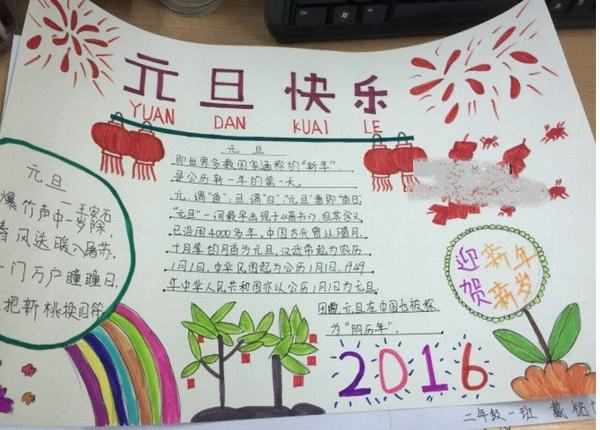 元旦快乐
YUAN DAN KUAI LE
元旦
王安石
爆竹声中一岁除,
春风送暖入屠苏。
千门万户曈曈日,
把新桃换旧符
元旦
即世界多数国家通称的“新年”
是公历新一年的第一天。
元,谓“首”;旦,谓“日”;“元旦”意即“首日”
“元旦”一词最早出现于《晋书》,但其含义
已沿用4000多年,中国古代曾以腊月、
十月等的月首为元旦,汉武帝起为农历
1月1日,中华民国起为公历1月1日,1949
年中华人民共和国亦以公历1月1日为元旦
因此元旦在中国也被称
为“阳历年”.
迎新年
贺新岁
2016
二年级一班 戴